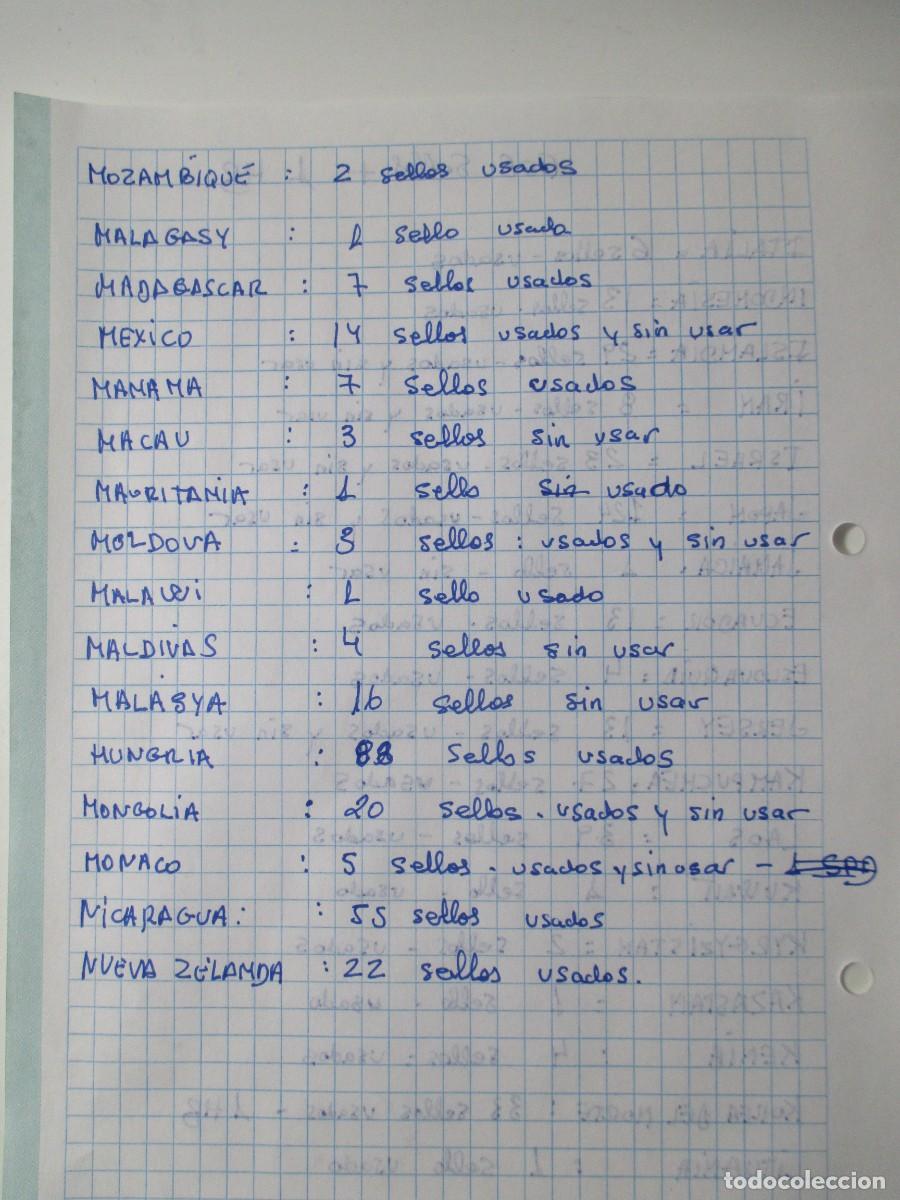 MOZAMBIQUE : 2 sellos usados
MALAGASY : 1 sello usada
MADAGASCAR : 7 sellos usados
MEXICO : 14 sellos usados y sin usar
MANAMA : 7 sellos usados
MACAU : 3 sellos sin usar
MAURITANIA : 1 sello sin usado
MOLDOVA : 3 sellos : usados y sin usar
MALAWI : 1 sello usado
MALDIVAS : 4 sellos sin usar
MALASYA : 16 sellos sin usar
HUNGRIA : 88 sellos usados
MONGOLIA : 20 sellos . usados y sin usar
MONACO : 5 sellos . usados y sin usar -
NICARAGUA : : 55 sellos usados
NUEVA ZELANDA : 22 sellos usados.
todocoleccion